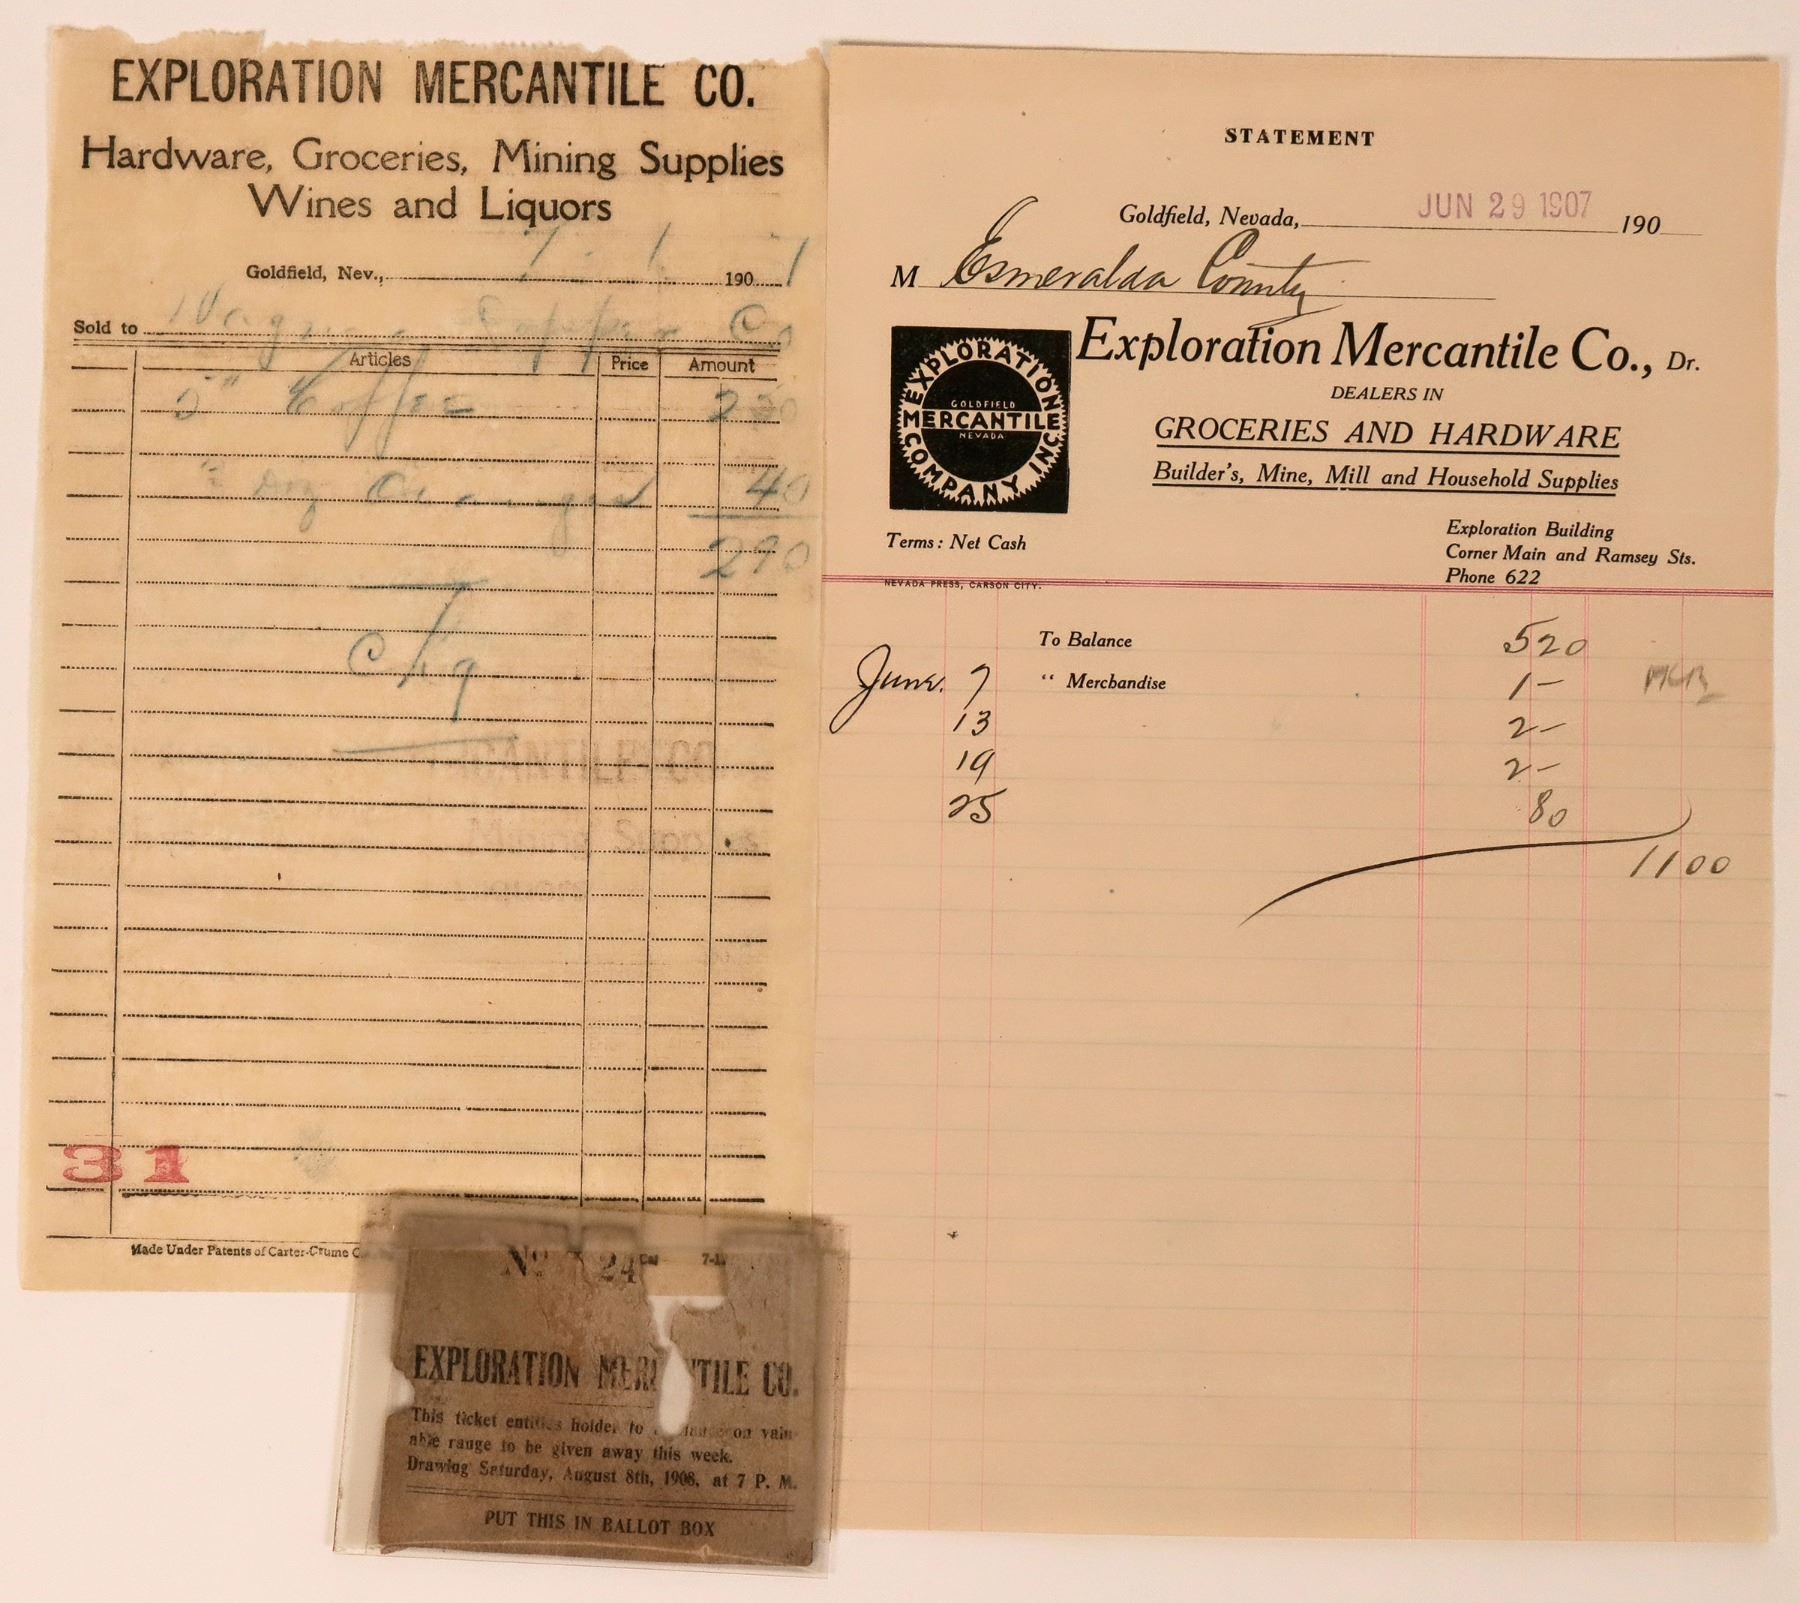 EXPLORATION MERCANTILE CO.
Hardware, Groceries, Mining Supplies
Wines and Liquors
Goldfield, Nev., 7 - 1 190 7
Sold to Co
Articles Price Amount
5" Coffee 2 50
Doz Oranges 40
2 90
Chg
CANTILE CO
Mining Supplies
31
Made Under Patents of Carter-Crume C
No 24
EXPLORATION MER TILE CO.
This ticket entitles holder to chance on valu-
able range to be given away this week.
Drawing Saturday, August 8th, 1908, at 7 P. M.
PUT THIS IN BALLOT BOX
STATEMENT
Goldfield, Nevada, JUN 29 1907 190
M Esmeralda County
EXPLORATION MERCANTILE COMPANY INC
GOLDFIELD
NEVADA
Exploration Mercantile Co., Dr.
DEALERS IN
GROCERIES AND HARDWARE
Builder's, Mine, Mill and Household Supplies
Terms: Net Cash
Exploration Building
Corner Main and Ramsey Sts.
Phone 622
NEVADA PRESS, CARSON CITY.
To Balance 5 20
June 7 " Merchandise 1 —
13 2 —
19 2 —
25 80
11 00